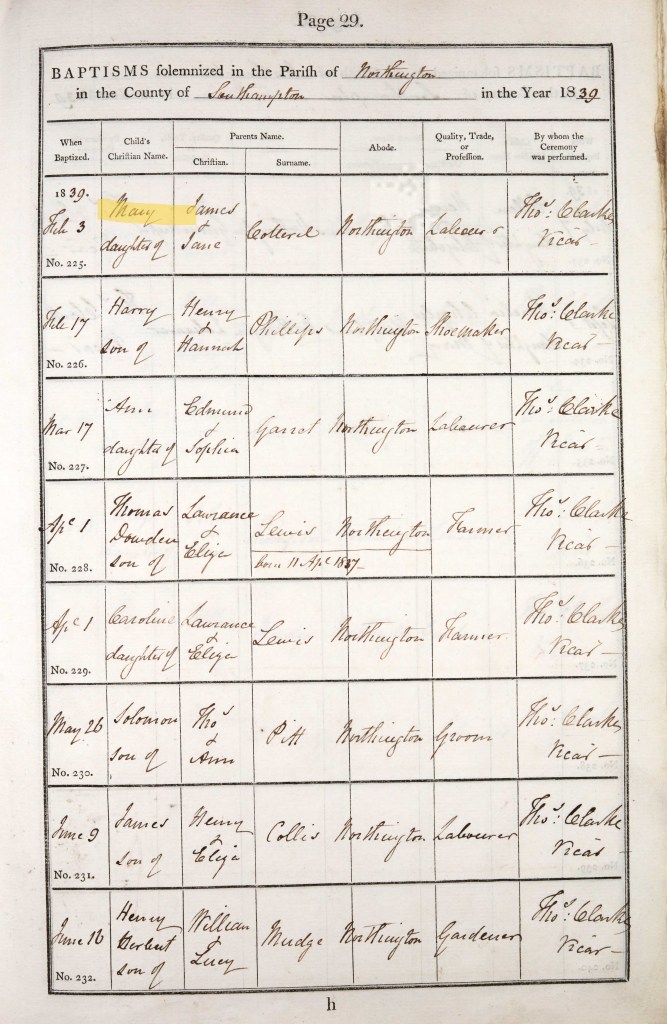 Page 29.
BAPTISMS solemnized in the Parish of Northington
in the County of Southampton in the Year 1839
When Baptized. Child's Christian Name. Parents Name. Christian. Surname. Abode. Quality, Trade, or Profession. By whom the Ceremony was performed.
1839.
Feb 3 Mary daughter of James & Jane Cotterel Northington Labourer Thos: Clarke Vicar
No. 225.
Feb 17 Harry son of Henry & Hannah Phillips Northington Shoemaker Thos: Clarke Vicar
No. 226.
Mar 17 Ann daughter of Edmund & Sophia Garret Northington Labourer Thos: Clarke Vicar
No. 227.
Apl 1 Thomas Dowden son of Lawrance & Eliza Lewis Northington Farmer Thos: Clarke Vicar
born 11 Apl 1837
No. 228.
Apl 1 Caroline daughter of Lawrance & Eliza Lewis Northington Farmer Thos: Clarke Vicar
No. 229.
May 26 Solomon son of Thos & Ann Pitt Northington Groom Thos: Clarke Vicar
No. 230.
June 9 James son of Henry & Eliza Collis Northington Labourer Thos: Clarke Vicar
No. 231.
June 16 Henry Herbert son of William & Lucy Mudge Northington Gardener Thos: Clarke Vicar
No. 232.
h